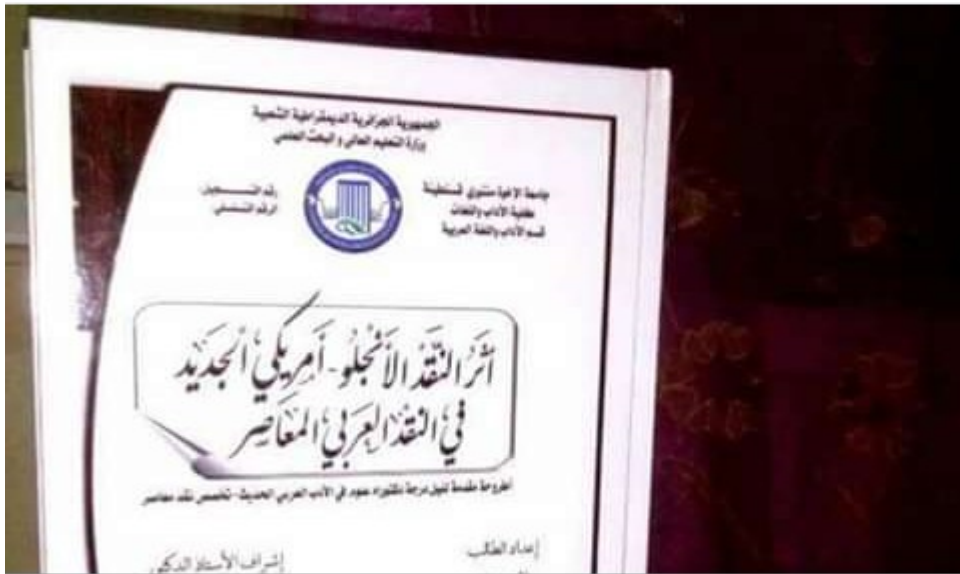 الجمهورية الجزائرية الديمقراطية الشعبية
وزارة التعليم العالي و البحث العلمي
جامعة الإخوة منتوري قسنطينة
كلية الآداب واللغات
قسم الآداب واللغة العربية
رقم التسجيل:
الرقم التسلسلي:
أثر النقد الأنجلو-أمريكي الجديد
في النقد العربي المعاصر
أطروحة مقدمة لنيل درجة دكتوراه علوم في الأدب العربي الحديث-تخصص نقد معاصر
إعداد الطالب:
إشراف الأستاذ الدكتور